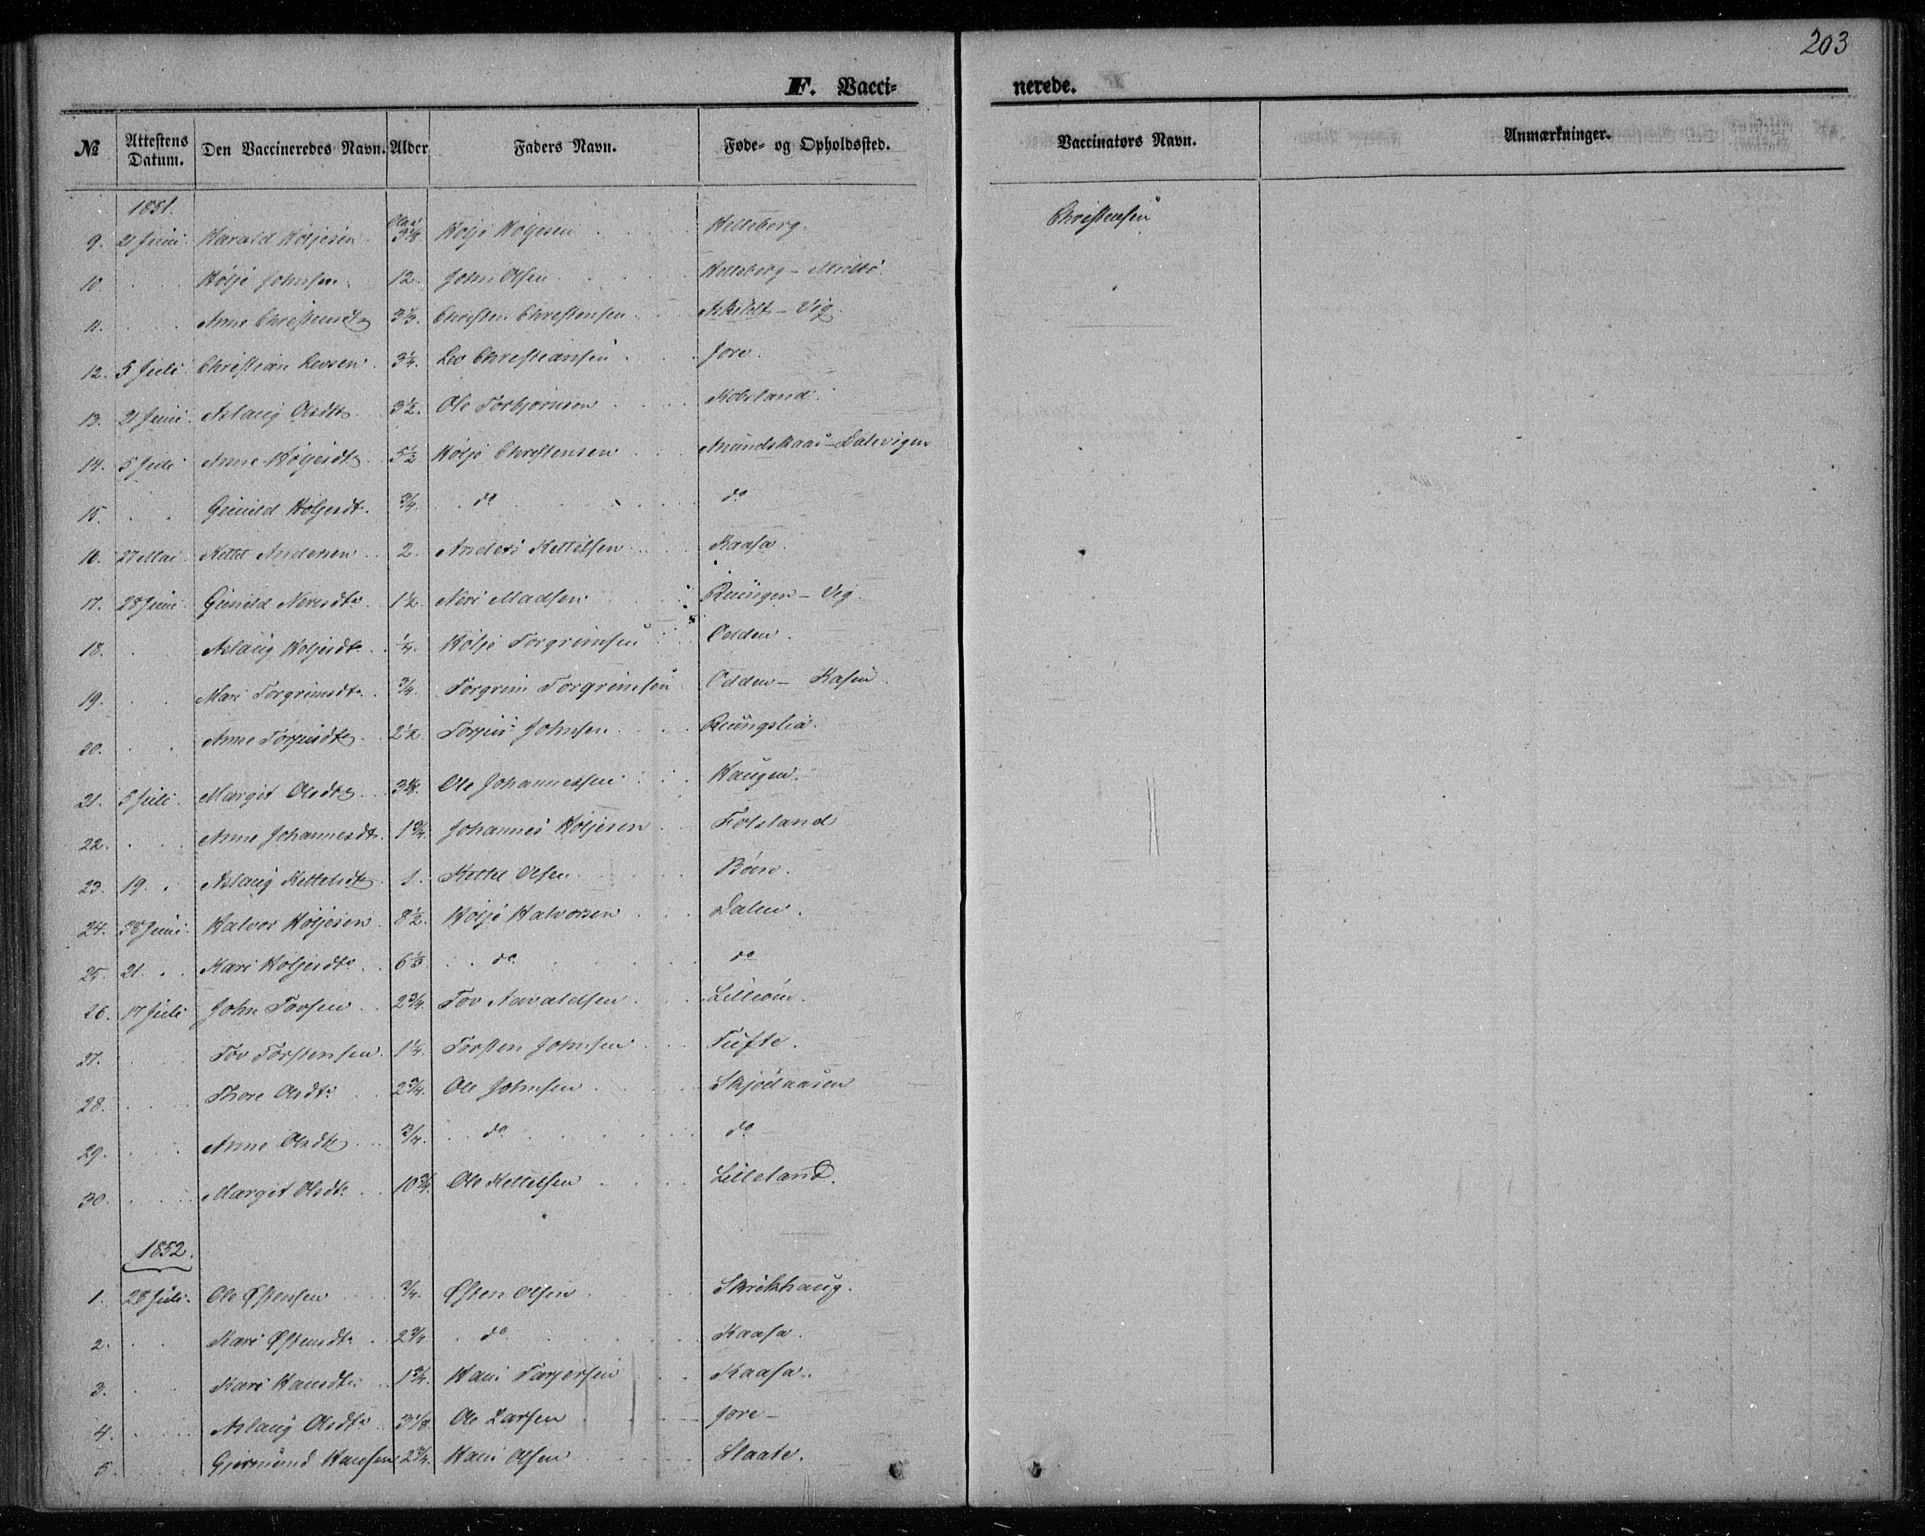 203
F. Vacci-
nerede.
№ Attestens Datum. Den Vaccineredes Navn. Alder Faders Navn. Føde- og Opholdssted. Vaccinators Navn. Anmærkninger.
1851.
9. 21 Juni Harald Høljesen Høljе Høljesen Helleberg. Christensen
10. Høljе Johnsen. 12. John Olsen Helleberg -
11. Anne Christensdtr 3½. Christen Christensen - Vig.
12. 5 Juli Christian Levsen. 3¼. Lev Christiansen Jore.
13. 21 Juni Aslaug Olsdtr 3½. Ole Torbjørnsen
14. 5 Juli Anne Høljesdtr 5½ Høljе Christensen Amundskaas - Dalevigen
15. Gunild Høljesdt. ¾. do do
16. 27 Mai Kettel Andersen 2. Anders Kettelsen Kaasa.
17. 28 Juni Gunild Nersdtr. 1½. Neri Madsen - Vig.
18. Aslaug Høljesdtr. ¼. Høljе Torgrimsen Odden.
19. Mari Torgrimsdtr. ¾. Torgrim Torgrimsen Odden -
20. Anne 2½. Johnsen
21. 5 Juli. Margit Olsdtr Ole Johannessen Haugen.
22. Anne Johannesdtr. 1¾. Johannes Høljesen Folsland
23. 19. Aslaug Kettelsdtr 1. Kettel Olsen
24. 28 Juni. Halvor Høljesen 8½. Høljе Halvorsen Dalen.
25. 21. Kari Høljesdtr do do
26. 17 Juli John Tovsen 2¾. Tov Lilleøin.
27. Tov Torstensen. 1¼. Torsten Johnsen Tufte.
28. Thore Olsdtr 2¾. Ole Johnsen
29. Anne Olsdtr ¾. do do
30. Margit Olsdtr. 10¾. Ole Kettelsen Lilleland.
1852.
1. 28 Juli. Ole Østensen ¾. Østen Olsen Skrikhaug.
2. Kari Østensdtr 2¾. do Kaasa.
3. Kari Hansdtr. 1¾. Hans Torjersen Kaasa.
4. Aslaug Olsdtr 3⅛. Ole Larsen Jore -
5. Gjermund Hansen 2¾. Hans Olsen Staate.